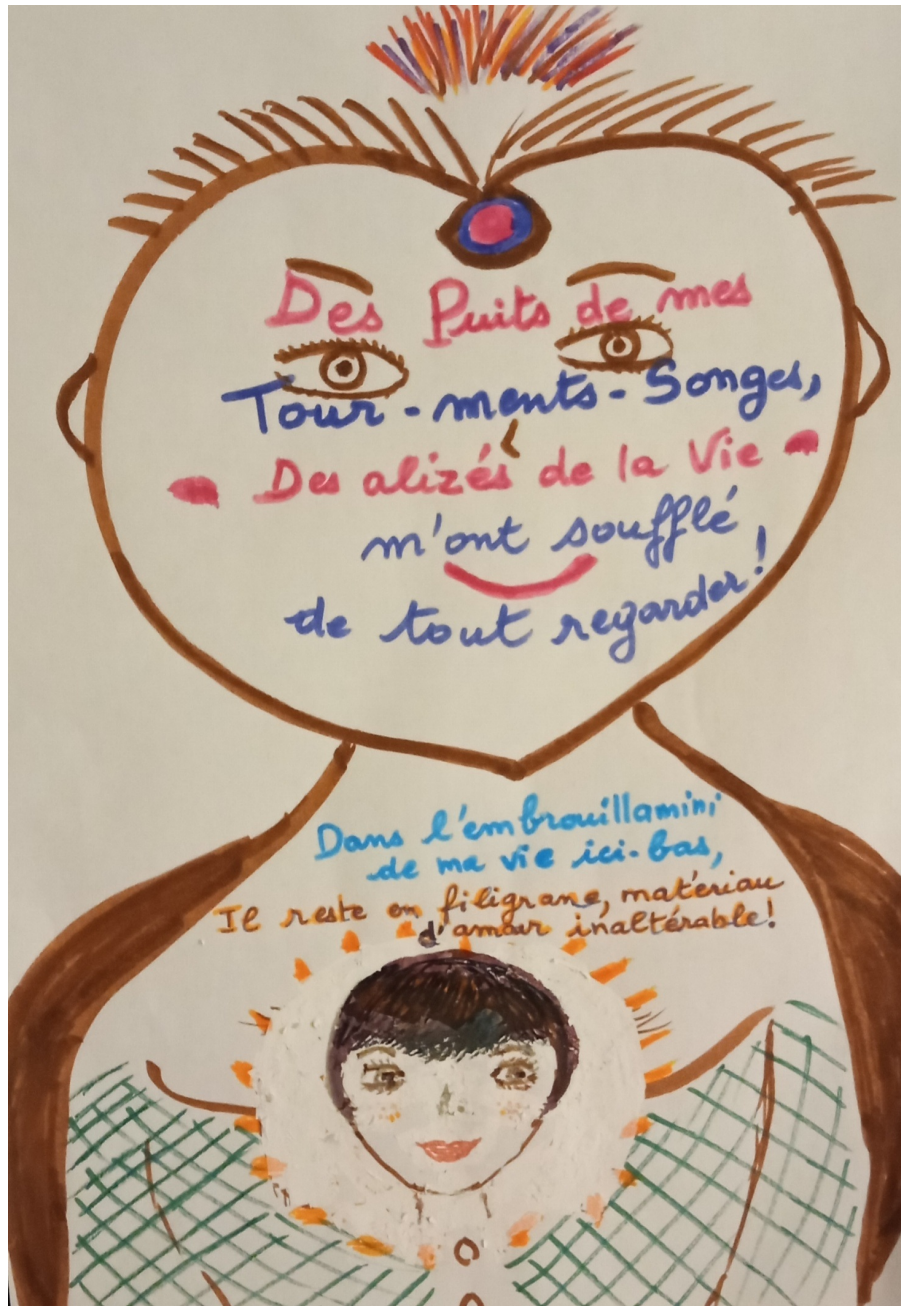 Des Puits de mes
Tour-ments-Songes,
Des alizés de la Vie
m'ont soufflé
de tout regarder!
Dans l'embrouillamini
de ma vie ici-bas,
Il reste en filigrane, matériau
d'amour inaltérable!